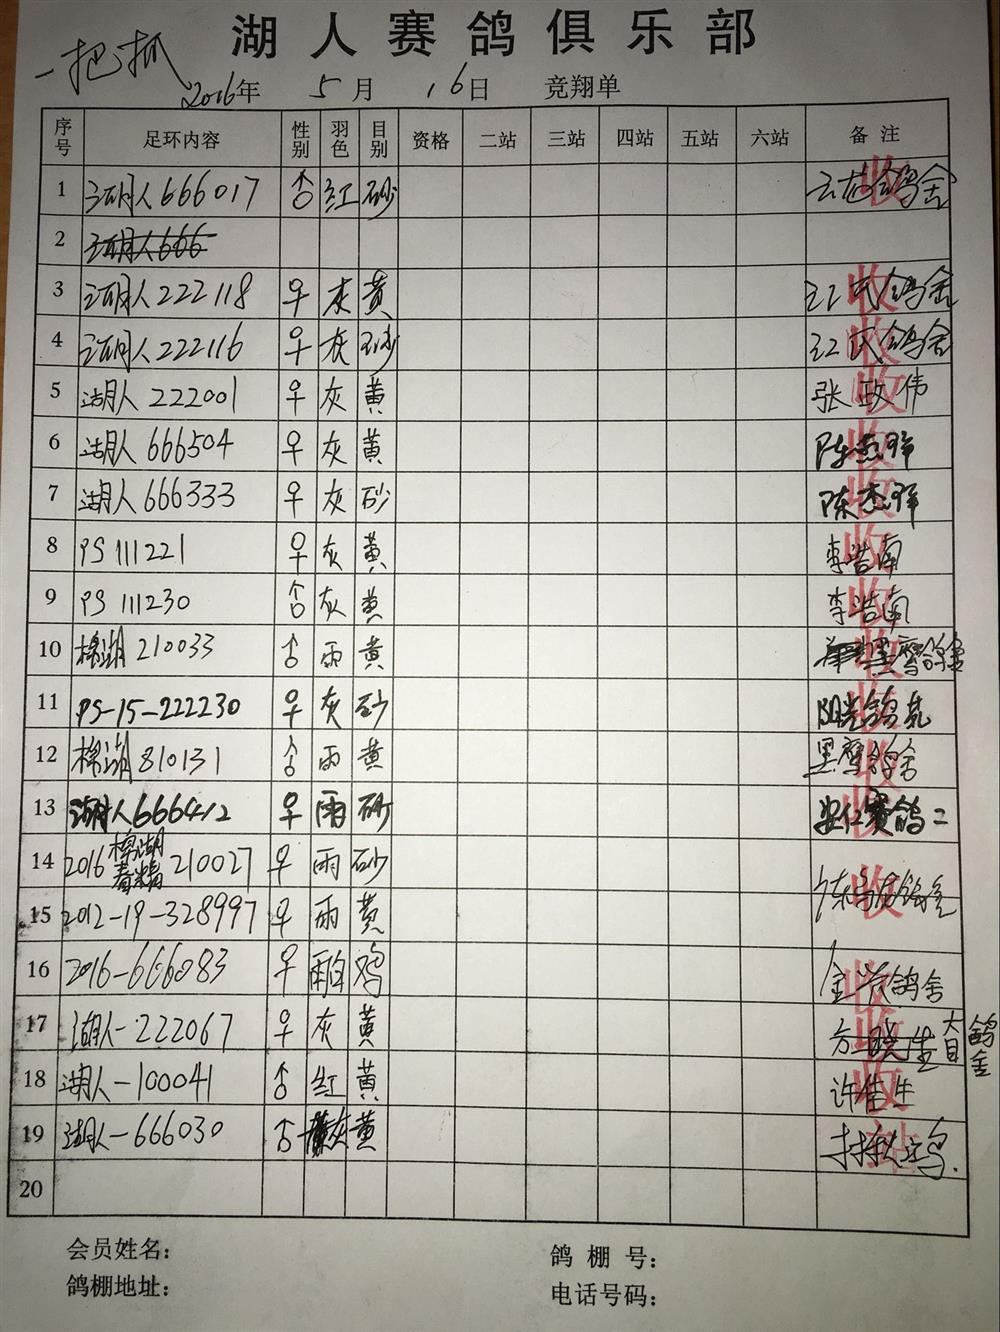 湖人赛鸽俱乐部
一把抓
2016年 5月 16日 竞翔单
序号 足环内容 性别 羽色 目别 资格 二站 三站 四站 五站 六站 备注
1 湖人666017 ♂ 红 砂 云龙鸽舍 收
2 湖人666
3 湖人222118 ♀ 灰 黄 江氏鸽舍 收
4 湖人222116 ♀ 灰 砂 江氏鸽舍 收
5 湖人 222001 ♀ 灰 黄 张政伟 收
6 湖人 666504 ♀ 灰 黄 陈杰群 收
7 湖人 666333 ♀ 灰 砂 陈杰群 收
8 PS 111221 ♀ 灰 黄 李浩南 收
9 PS 111230 ♂ 灰 黄 李浩南 收
10 棉湖 210033 ♂ 雨 黄 黑鹰鸽舍 收
11 PS-15-222230 ♀ 灰 砂 阳光鸽苑 收
12 棉湖 810131 ♂ 雨 黄 黑鹰鸽舍 收
13 湖人666412 ♀ 雨 砂 赛鸽二 收
14 2016 棉湖春棉 210027 ♀ 雨 砂 收
15 2012-19-328997 ♀ 雨 黄
16 2016-666083 ♀ 雨白 鸡 鸽舍 收
17 湖人-222067 ♀ 灰 黄 方晓生 大目鸽舍 收
18 湖人-100041 ♂ 红 黄 许佳生 收
19 湖人-666030 ♂ 灰 黄 站
20
会员姓名： 鸽棚号：
鸽棚地址： 电话号码：